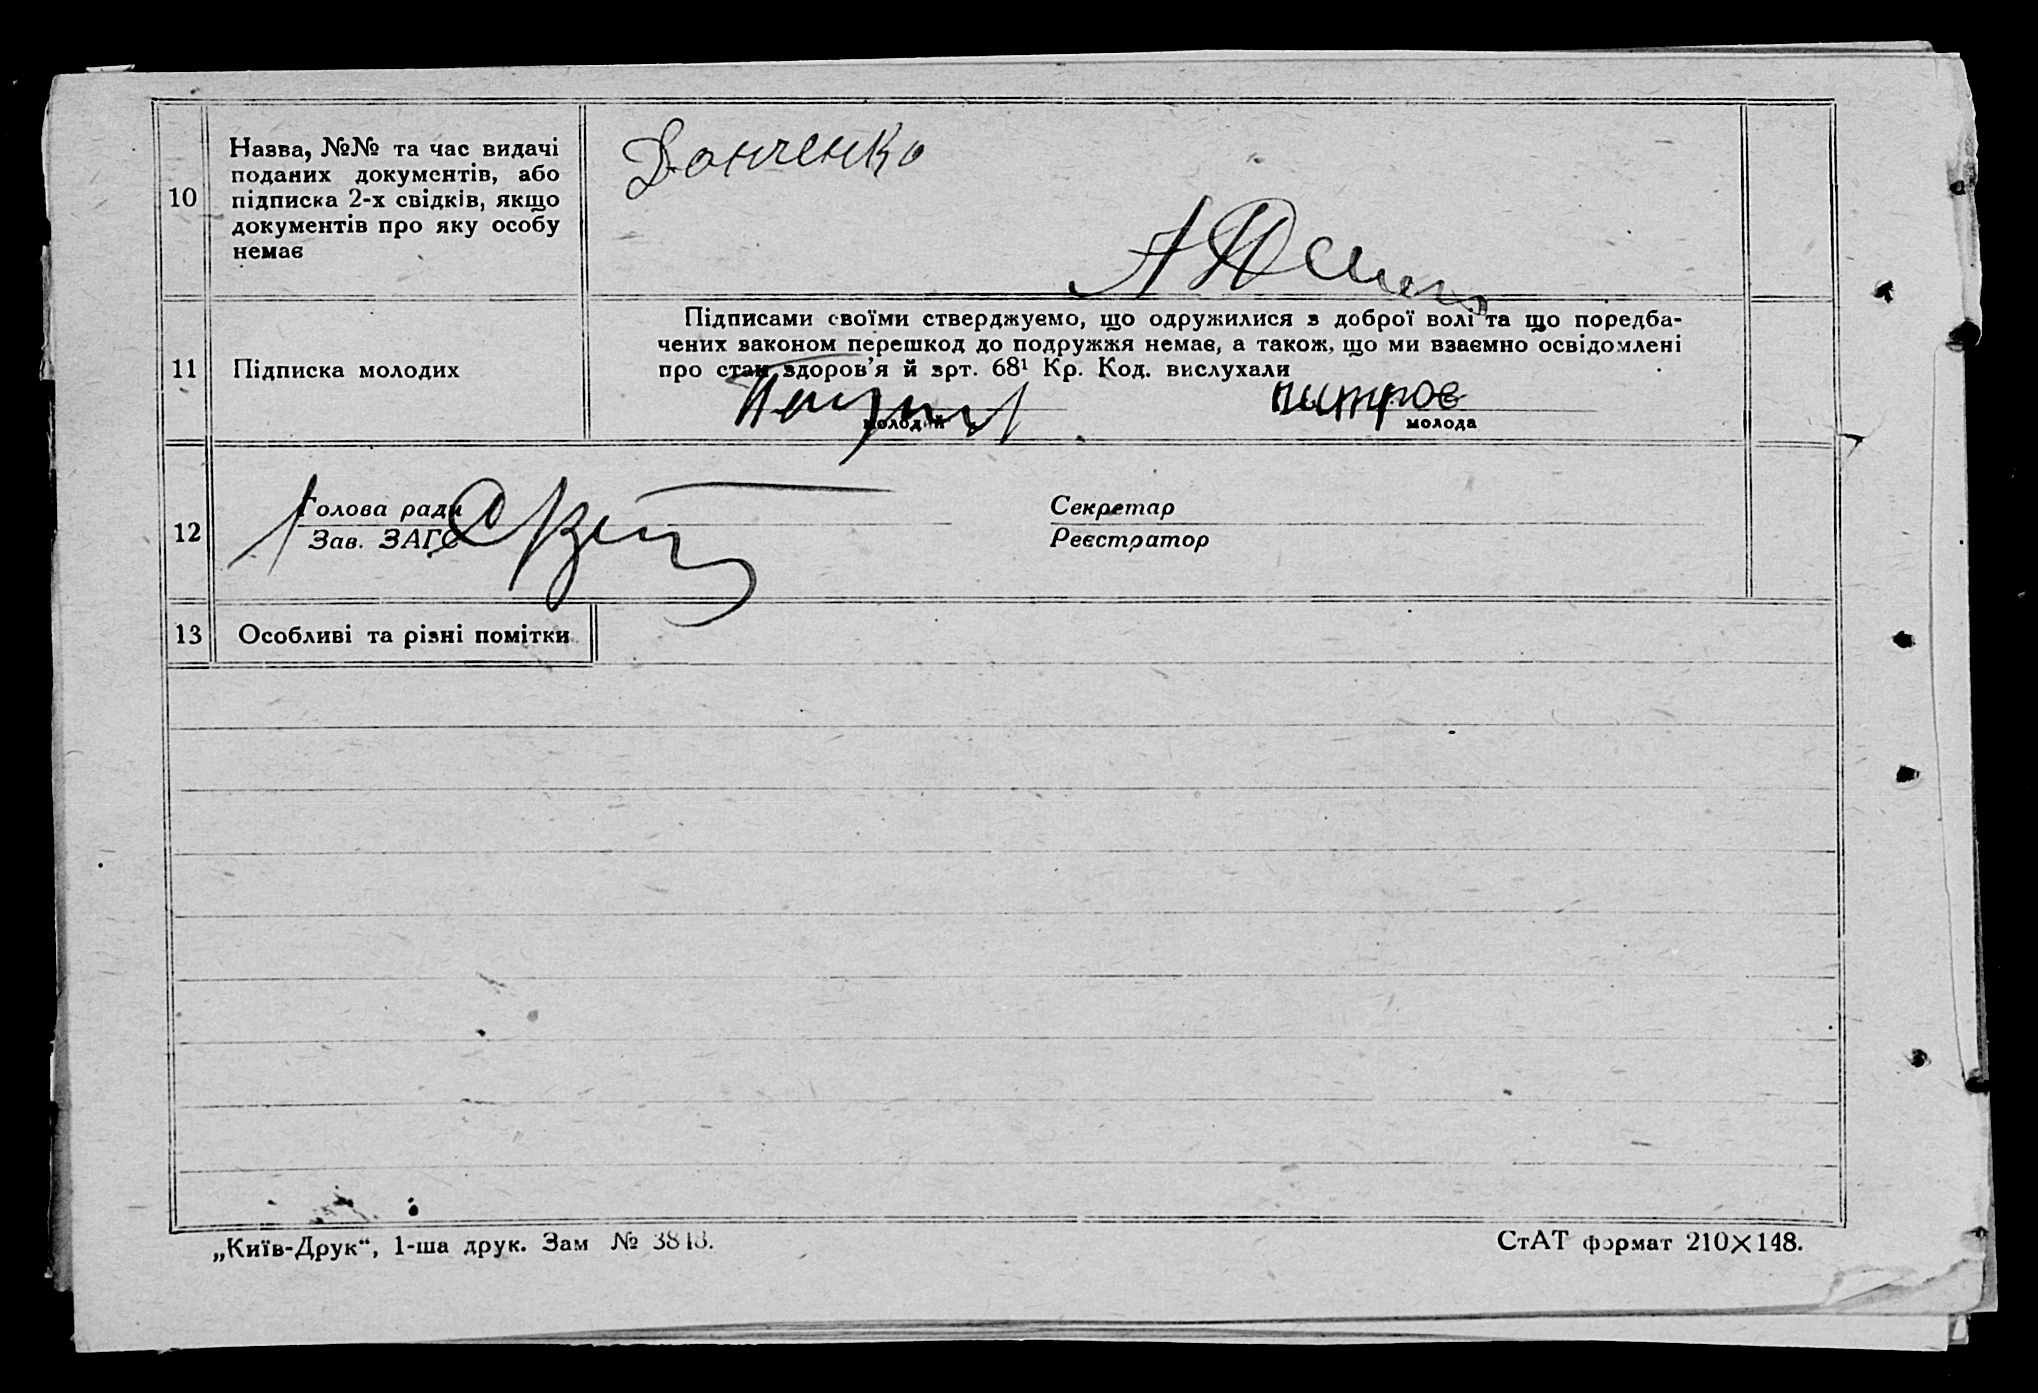 10
Назва, №№ та час видачі
поданих документів, або
підписка 2-х свідків, якщо
документів про яку особу
немає
Донченко
11
Підписка молодих
Підписами своїми стверджуємо, що одружилися з доброї волі та що поредба-
чених законом перешкод до подружжя немає, а також, що ми взаємно освідомлені
про стан здоров'я й зрт. 68¹ Кр. Код. вислухали
молодий
молода
12
Голова ради
Зав. ЗАГС
Секретар
Реєстратор
13
Особливі та різні помітки
„Київ-Друк“, 1-ша друк. Зам №
СтАТ формат 210×148.